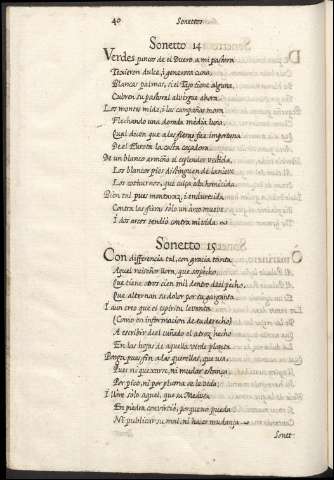 40 Sonettos
Sonetto 14
Verdes juncos de el Duero, a mi pastora
Texieron dulce, i generosa cuna,
Blancas palmas, si el Tajo tiene alguna,
Cubren su pastoral alvergue ahora.
Los montes mide, i las campañas mora
Flechando una dorada media luna,
Qual dicen que a las fieras fue importuna
De el Eurota la casta caçadora.
De un blanco armiño el esplendor vestida,
Los blancos pies distinguen de la nieve
Los coturnos, que calça esta homicida
Bien tal, pues montaraz, i endurecida
Contra las fieras sólo un arco mueve
I dos arcos tendió contra mi vida.
Sonetto 15
Con differencia tal, con gracia tanta
Aquel ruiseñor llora, que sospecho
Que tiene otros cien mil dentro del pecho,
Que alternan su dolor por su garganta
I aun creo que el espiritu levanta
(Como en informacion de su derecho)
A escribir de el cuñado el atroz hecho
En las hojas de aquella verde planta
Ponga, pues, fin a las querellas, que usa,
Pues ni quexarse, ni mudar estança
Por pico, ni por pluma se le veda;
I llore solo aquel, que su Medusa
En piedra convirtió, porque no pueda
Ni publicar su mal, ni hacer mudança
Sonet